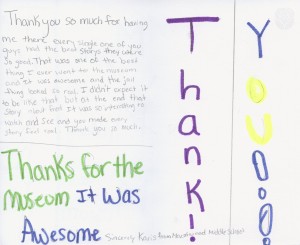 Thank you so much for having
me there every single one of you
guys had the best storys they where
so good. That was one of the best
thing I ever went to the museum
and it was awesome and the
thing looked so real. I didn't expect it
to be like that but at the end that
Story and felt it was so intresting to
watch and and you made every
story feel real. Thank you so much.
Thanks for the
Museum It Was
Awesome
Sincerly From Middle School
Thank!
YOU!!!